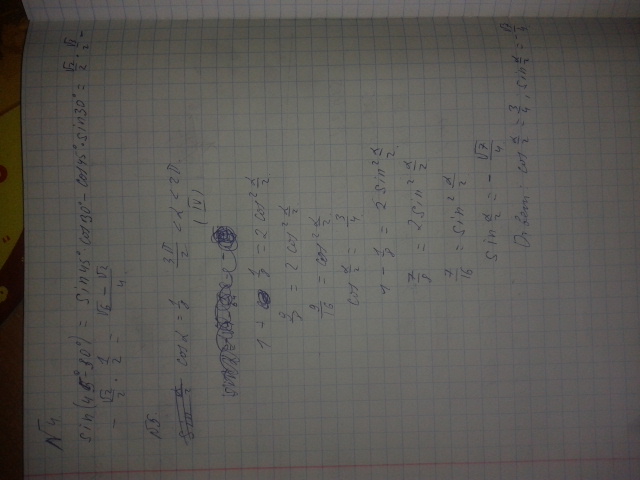 N4.
sin(45°-30°) = sin45° cos30° - cos45° · sin30° = √2/2 · √3/2 -
- √2/2 · 1/2 = (√6 - √2)/4
N5.
cosα = 1/8 3π/2 < α < 2π
(IV)
1 + 1/8 = 2cos² α/2
9/8 = 2cos² α/2
9/16 = cos² α/2
cos α/2 = 3/4
1 - 1/8 = 2sin² α/2
7/8 = 2sin² α/2
7/16 = sin² α/2
sin α/2 = - √7/4
Ответ: cos α/2 = 3/4, sin α/2 =